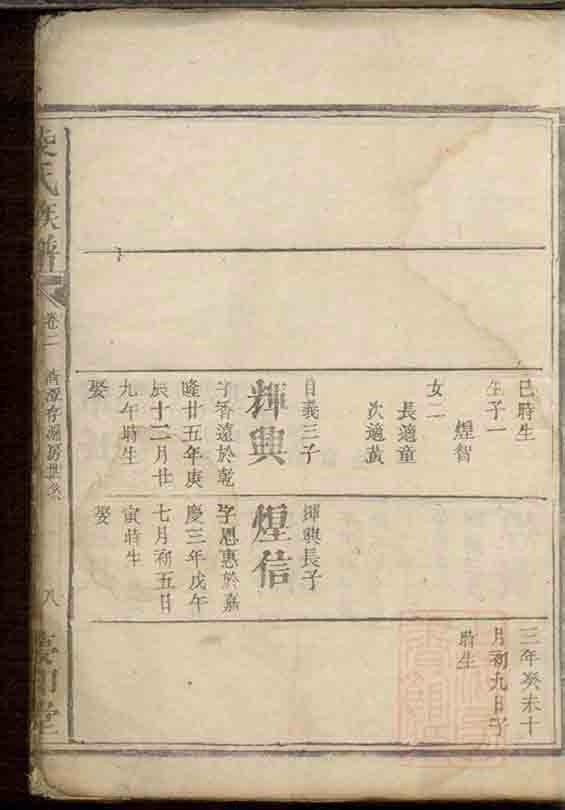 氏族譜
卷二
八
巳時生
生子一
煌智
女二
長適童
次適黄
自義三子
輝興
字香遠於乾
隆廿五年庚
辰十二月廿
九午時生
娶
輝興長子
煌信
字恩惠於嘉
慶三年戊午
七月初五日
寅時生
娶
三年癸未十
月初九日子
時生